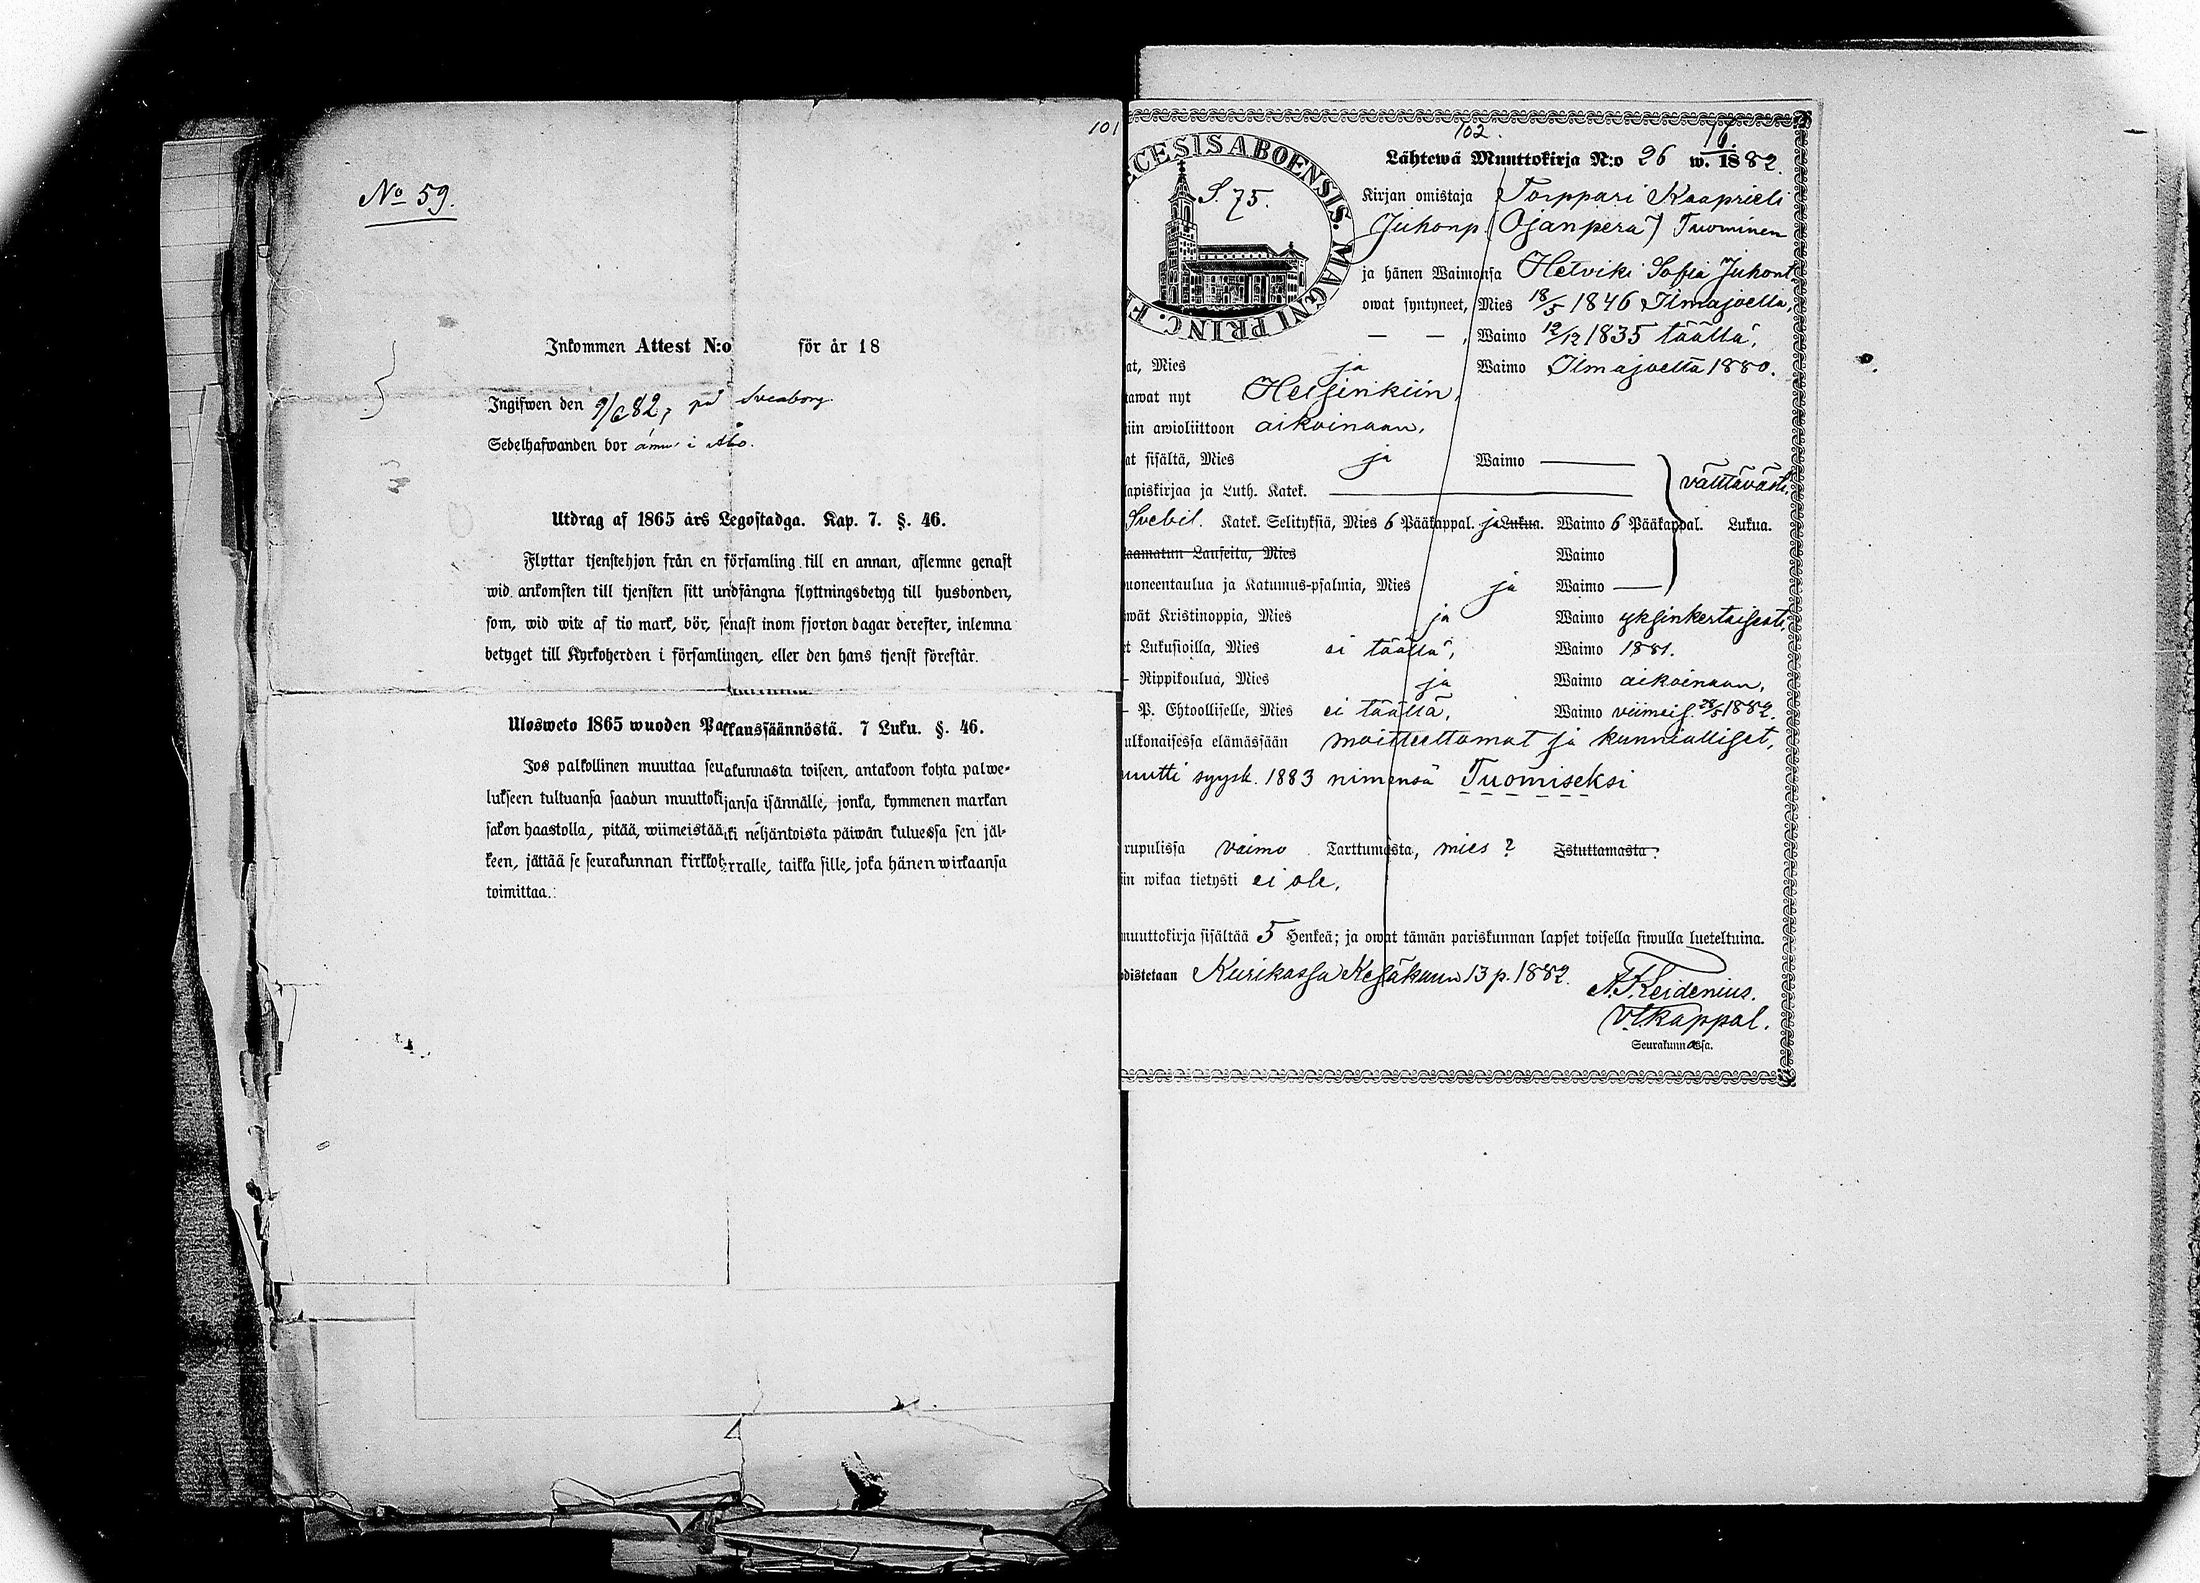 101
No 59.
Inkommen Attest N:o för år 18
Ingifwen den 9/6 82, på Sveaborg.
Sedelhafwanden bor ännu i Åbo.
Utdrag af 1865 års Legostadga. Kap. 7. §. 46.
Flyttar tjenstehjon från en församling till en annan, aflemne genast
wid ankomsten till tjensten sitt undfångna flyttningsbetyg till husbonden,
som, wid wite af tio mark, bör, senast inom fjorton dagar derefter, inlemna
betyget till Kyrkoherden i församlingen, eller den hans tjenst förestår.
Ulosweto 1865 wuoden Palkkaussäännöstä. 7 Luku. §. 46.
Jos palkollinen muuttaa seurakunnasta toiseen, antakoon kohta palwe-
lukseen tultuansa saadun muuttokirjansa isännälle, jonka, kymmenen markan
sakon haastolla, pitää, wiimeistäänki neljäntoista päiwän kuluessa sen jäl-
keen, jättää se seurakunnan kirkkoherralle, taikka sille, joka hänen wirkaansa
toimittaa.
102.
ECESIS ABOENSIS. MAGNI PRINC. F
S. 75.
Lähtewä Muuttokirja N:o 26 w. 1882.
Kirjan omistaja Torppari Kaaprieli
Juhonp. (Ojanperä) Tuominen
ja hänen Waimonsa Hetviki Sofia Juhont.
owat syntyneet, Mies 18/5 1846 Ilmajoella,
— — , Waimo 12/12 1835 täällä,
at, Mies ja Waimo Ilmajoelta 1880.
tawat nyt Helsinkiin,
iin awioliittoon aikoinaan,
at sisältä, Mies ja Waimo —
välttävästi,
lapiskirjaa ja Luth. Katek. —
Svebil. Katek. Selityksiä, Mies 6 Pääkappal. ja Lukua. Waimo 6 Pääkappal. Lukua.
aamatun Lauseita, Mies Waimo
uoneentaulua ja Katumus-psalmia, Mies ja Waimo —
wät Kristinoppia, Mies ja Waimo yksinkertaisesti,
t Lukusioilla, Mies ei täällä, Waimo 1881.
– Rippikoulua, Mies ja Waimo aikoinaan,
– P. Ehtoolliselle, Mies ei täällä, Waimo viimeis. 28/5 1882.
ulkonaisessa elämässään moitteettomat ja kunnialliset,
muutti syysk. 1883 nimensä Tuomiseksi
rupulissa vaimo Tarttumasta, mies ? Istuttamasta?
iin wikaa tietysti ei ole,
muuttokirja sisältää 5 Henkeä; ja owat tämän pariskunnan lapset toisella siwulla lueteltuina.
distetaan Kurikassa Kesäkuun 13 p. 1882.
Vt. kappal.
Seurakunnassa.